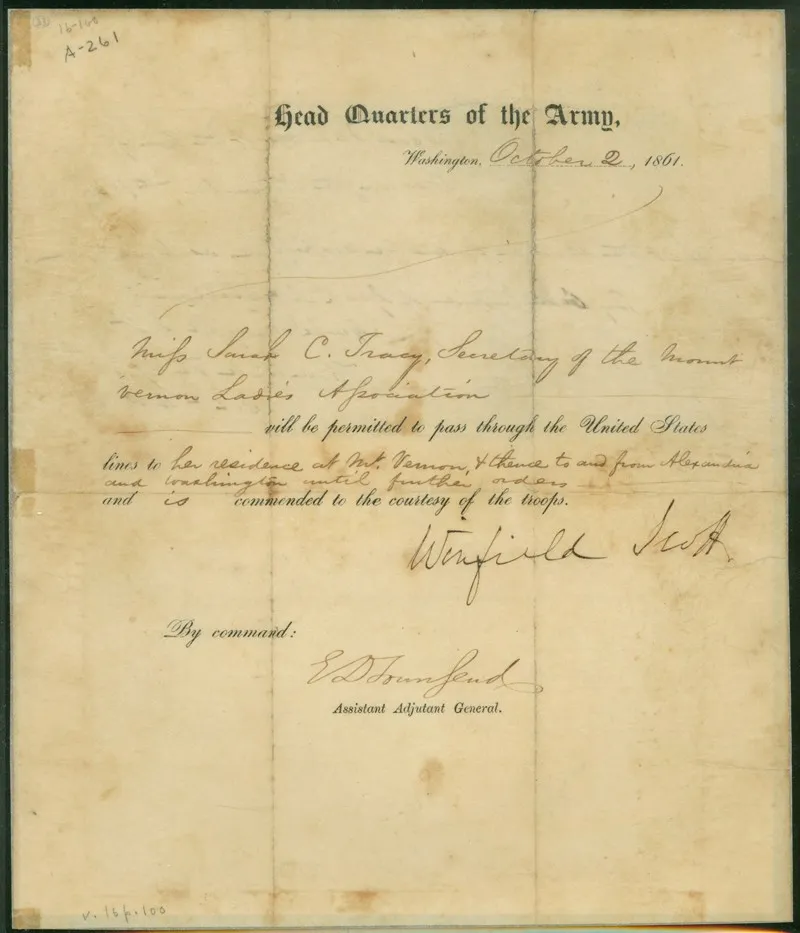 16-100
A-261
Head Quarters of the Army,
Washington, October 2, 1861.
Miss Sarah C. Tracy, Secretary of the Mount
Vernon Ladies Association
will be permitted to pass through the United States
lines to her residence at Mt. Vernon, & thence to and from Alexandria
and Washington until further orders
and is commended to the courtesy of the troops.
Winfield Scott
By command:
E D Townsend
Assistant Adjutant General.
v. 16 p. 100